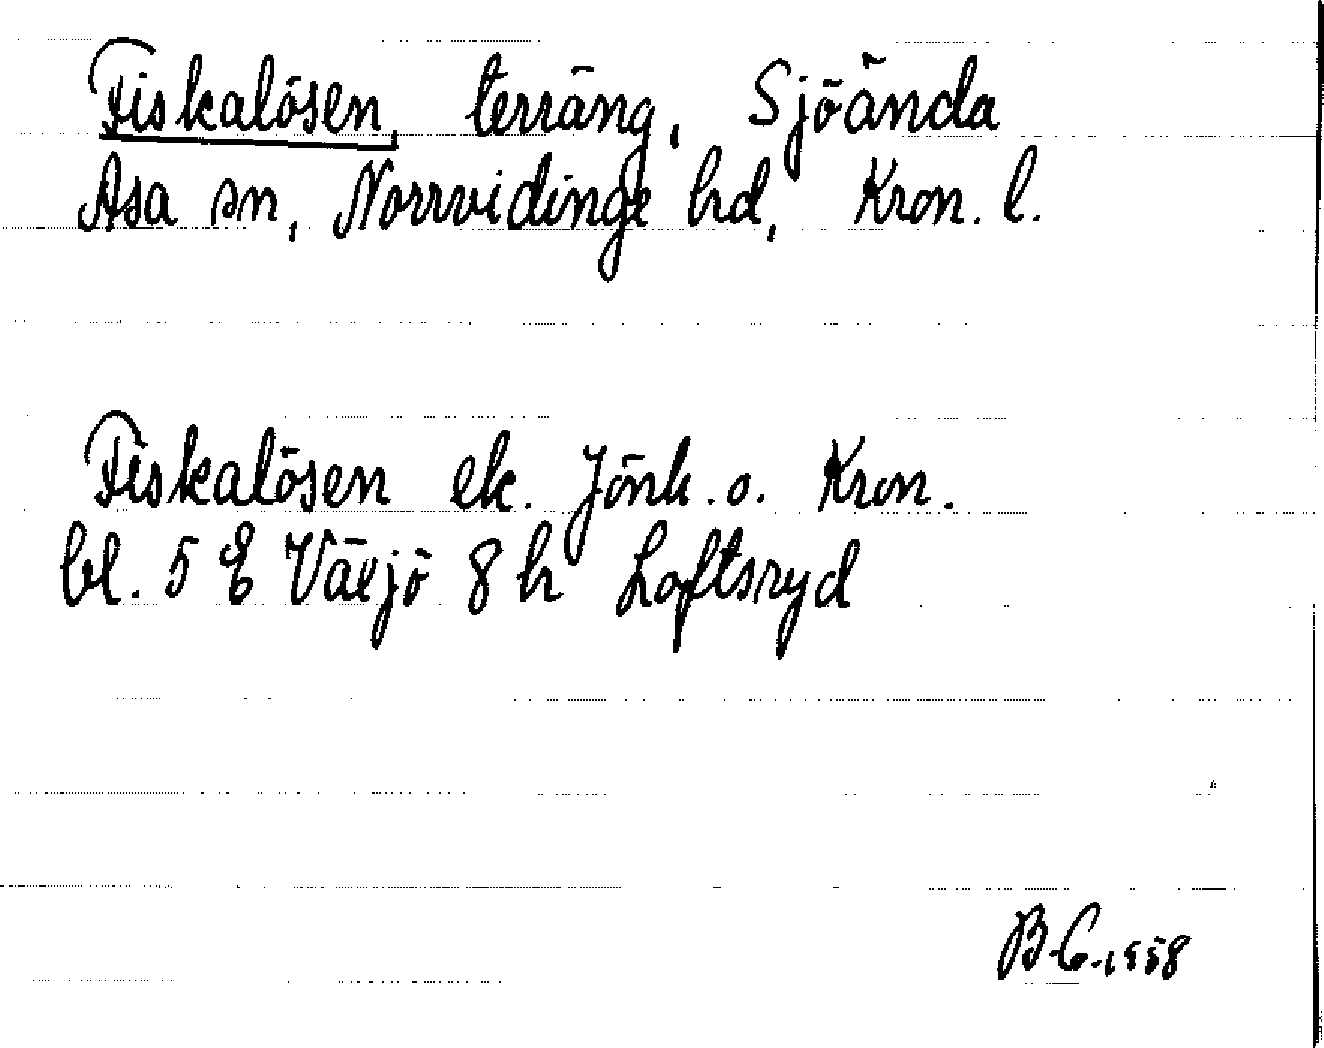 Fiskalösen, terräng, Sjöända
Asa sn, Norrvidinge hd, Kron. l.
Fiskalösen ek. Jönk. o. Kron.
bl. 5 E Växjö 8 h Loftsryd
B.C. 1958